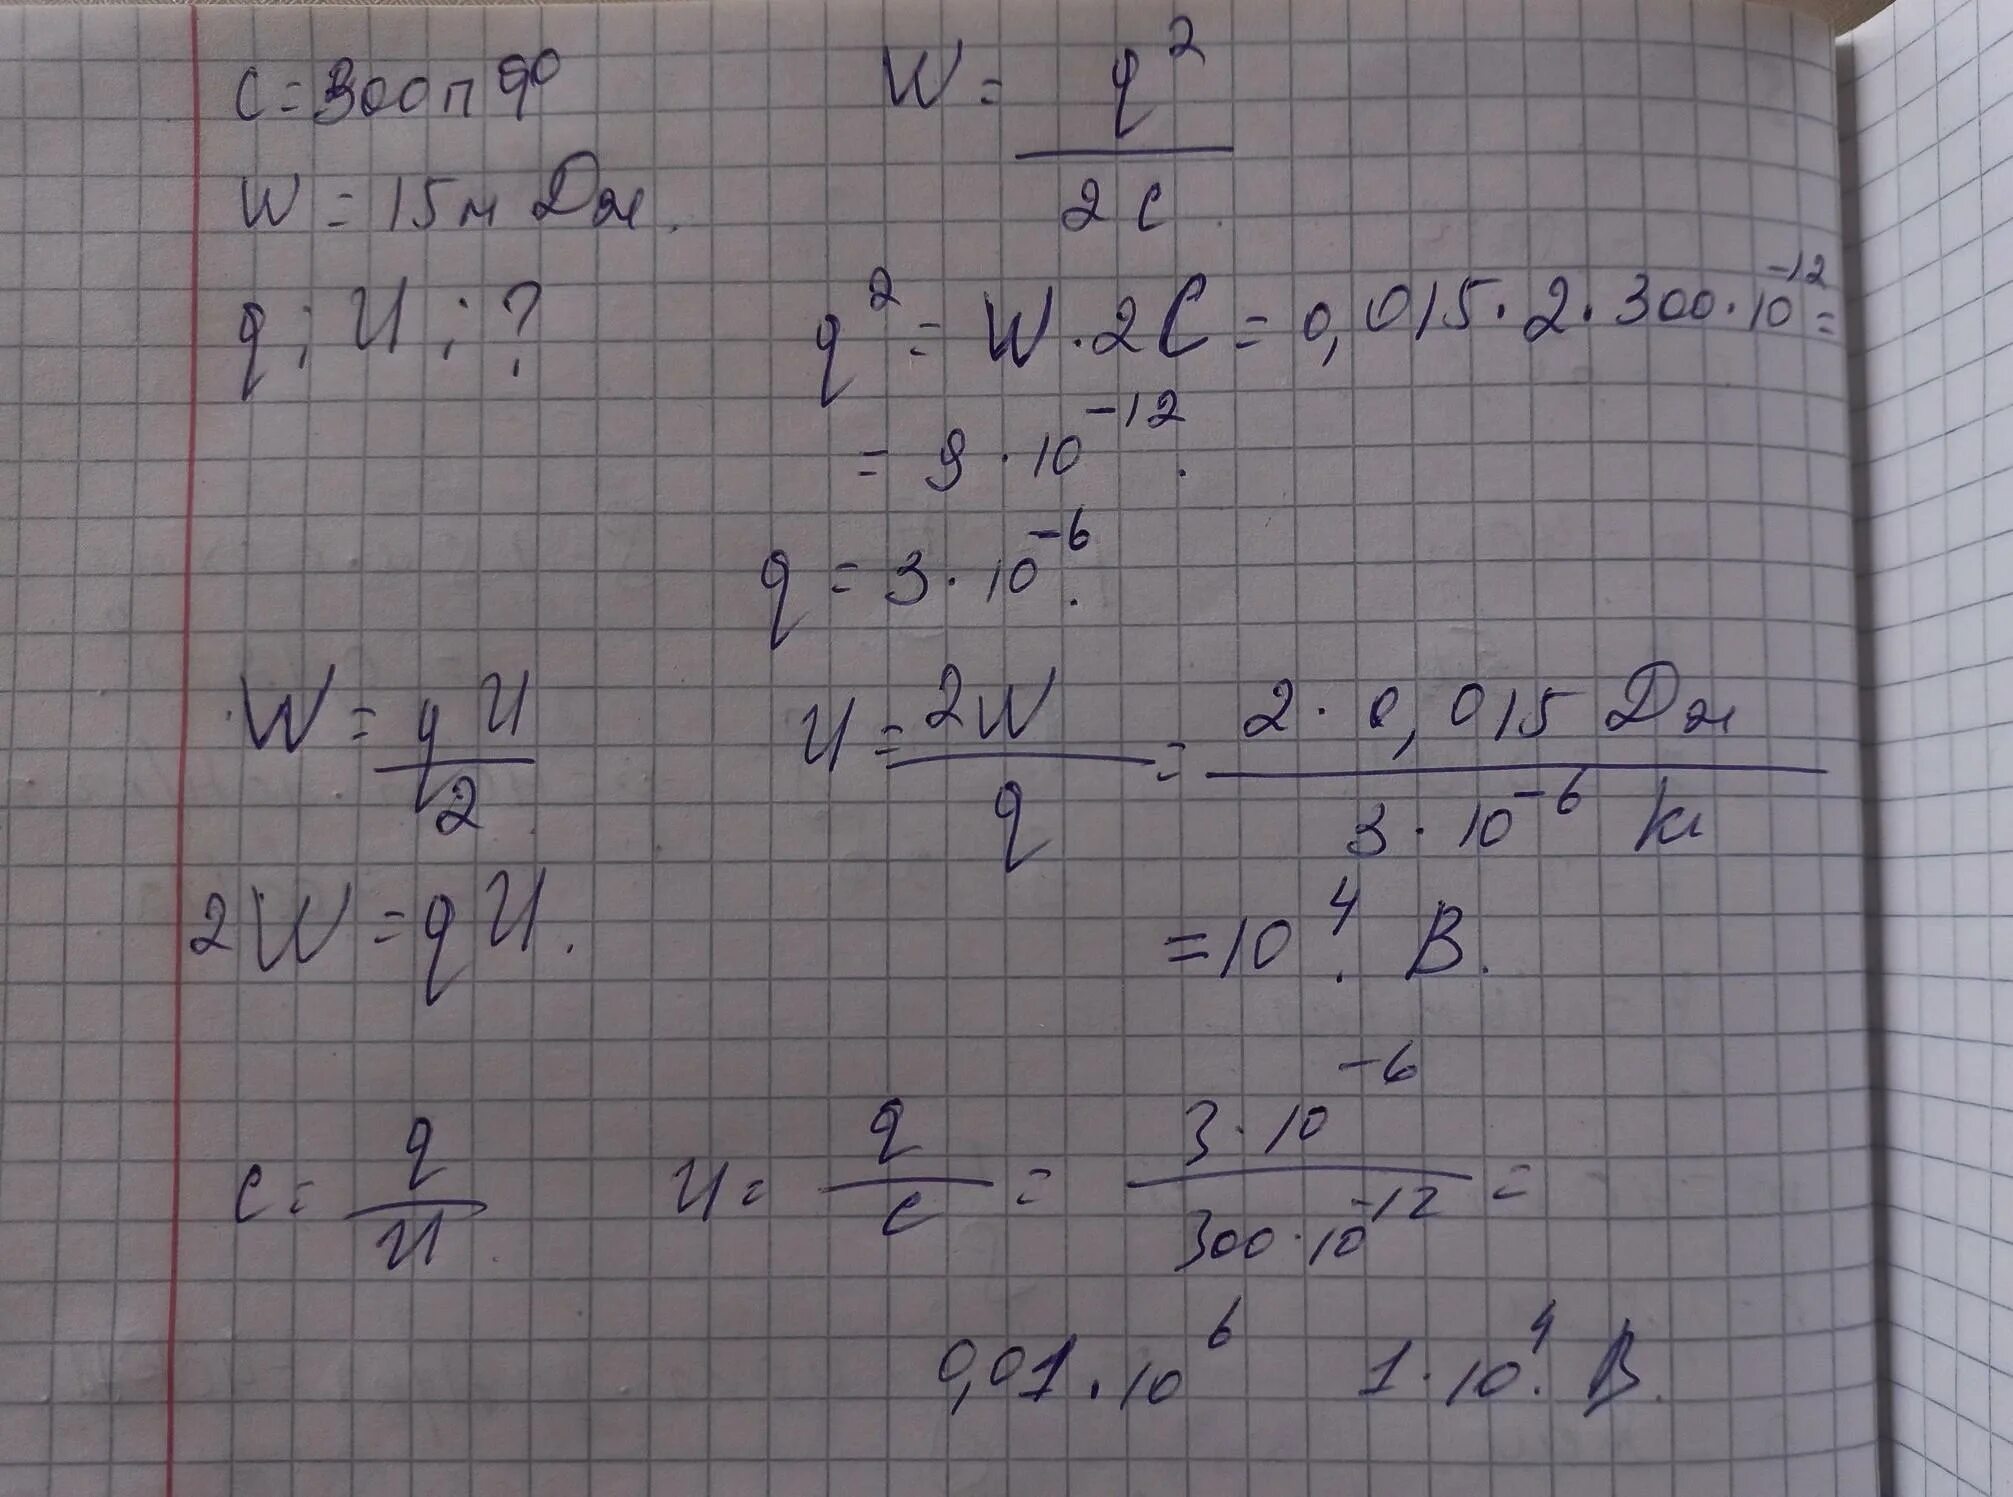 C = 300 пФ
W = 15 м Дж.
q ; U ; ?
W = q² / 2C
q² = W · 2C = 0,015 · 2 · 300 · 10⁻¹² =
= 9 · 10⁻¹².
q = 3 · 10⁻⁶.
W = qU / 2
2W = qU.
U = 2W / q = 2 · 0,015 Дж / 3 · 10⁻⁶ Кл
= 10⁴. В.
C = q / U.
U = q / C = 3 · 10⁻⁶ / 300 · 10⁻¹² =
0,01 · 10⁶ 1 · 10⁴. В.